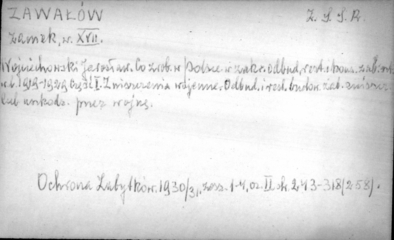 ZAWAŁÓW Z.S.S.R.
Zamek, w. XVII.
Wojciechowski Jarosław. Co zrob. w Polsce w zakr. odbud., rest. i kons. zab. 
w l. 1919-1929 Część I. Zniszczenia wojenne. Odbud. i rest. budow. zab. zniszcz.
lub uszkodz. przez wojnę.
Ochrona Zabytków. 1930/31. zesz. 1-4, cz. II. str. 243-318 (258).